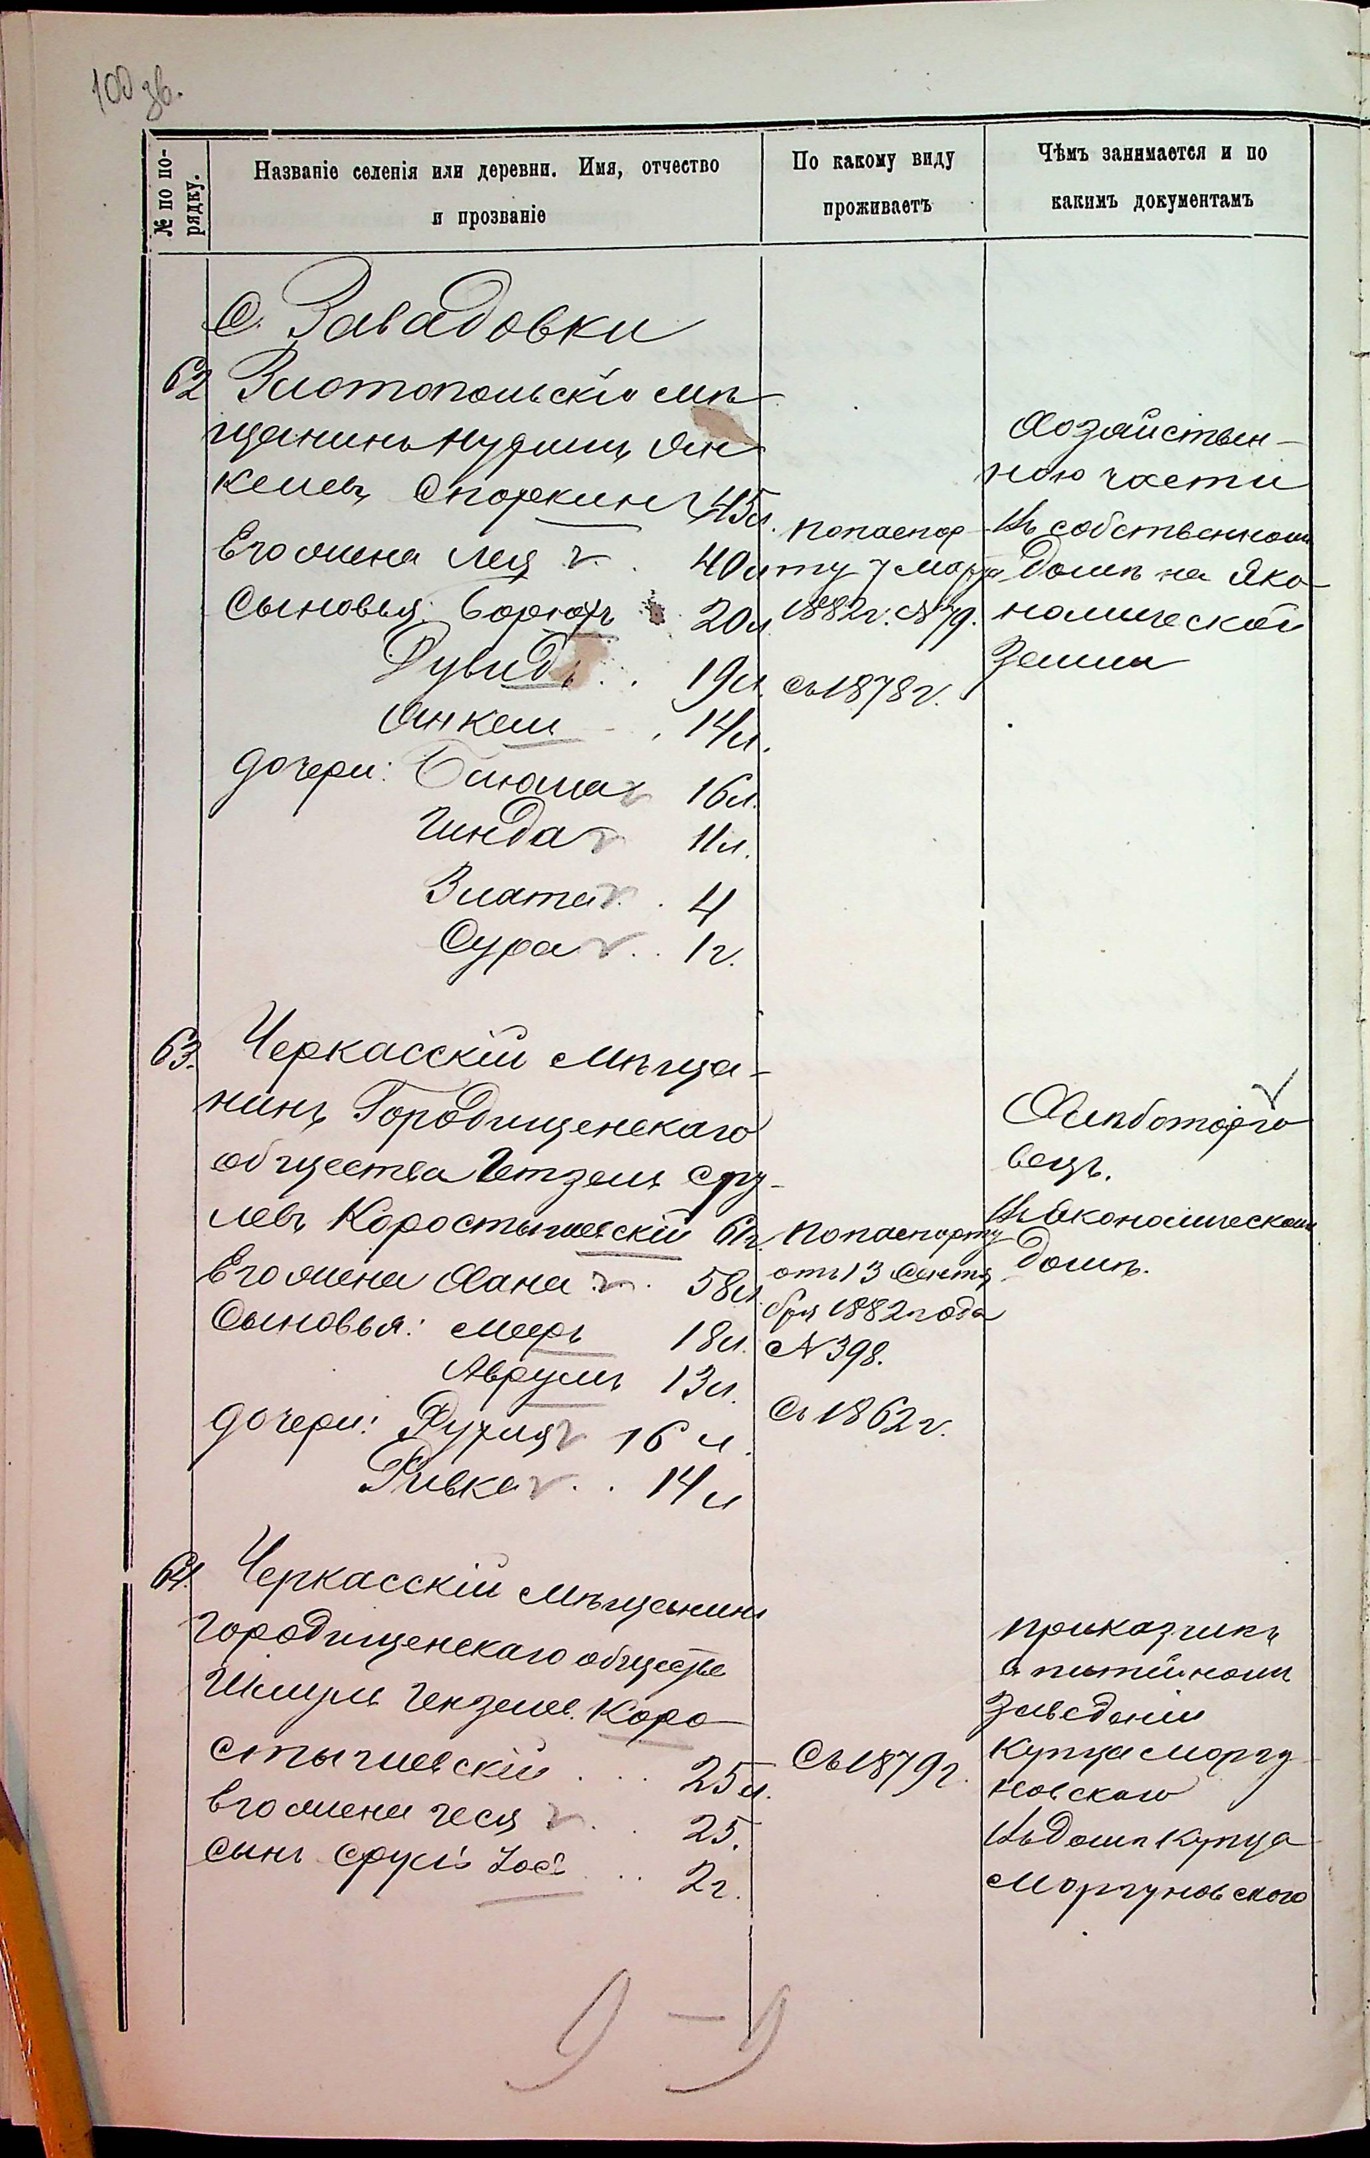 100 зв.
№ по по-
рядку.
Названіе селенія или деревни. Имя, отчество
и прозваніе
По какому виду
проживаетъ
Чѣмъ занимается и по
какимъ документамъ
С. Завадовки
62 Злотопольскій мѣ
щанинъ Нухим Ян
келевъ Споркин 45 л.
Его жена Лея 40 л
Сыновья: Борюхъ 20 л.
Дувидъ 19 л.
Янкель 14 л.
дочери: 16 л.
Гинда 11 л.
Злата 4
Сура 1 г.
По паспор
ту 7 Марта
1882 г. №79.
Съ 1878 г.
Хозайствен-
ною части
Въ собственном
домѣ на Эко-
номической
Земли
63. Черкасскій мѣща-
нинъ Городищенскаго
общества Гетзель Сру-
левъ Коростышевскій 61 г.
Его жена Хана 58 л.
Сыновья: Меер 18 л.
Аврумъ 13 л.
дочери: Рухля 16 л.
Ривка 14 л
По паспорту
отъ 13 Сентя
бря 1882 года
№ 398.
Съ 1862 г.
Хлѣботорго
вецъ.
Въ Экономическом
домѣ.
64. Черкасскій Мѣщанинъ
Городищенскаго общества
Шмуль Гецелев. Коро
стышевскій 25 л.
Его жена Чеся 25.
Сынъ Сруль 2 г.
Съ 1879 г.
Приказчикъ
в питейном
Заведеніи
Купца Моргу
новскаго
Въ домѣ Купца
Моргуновского
9 – 9